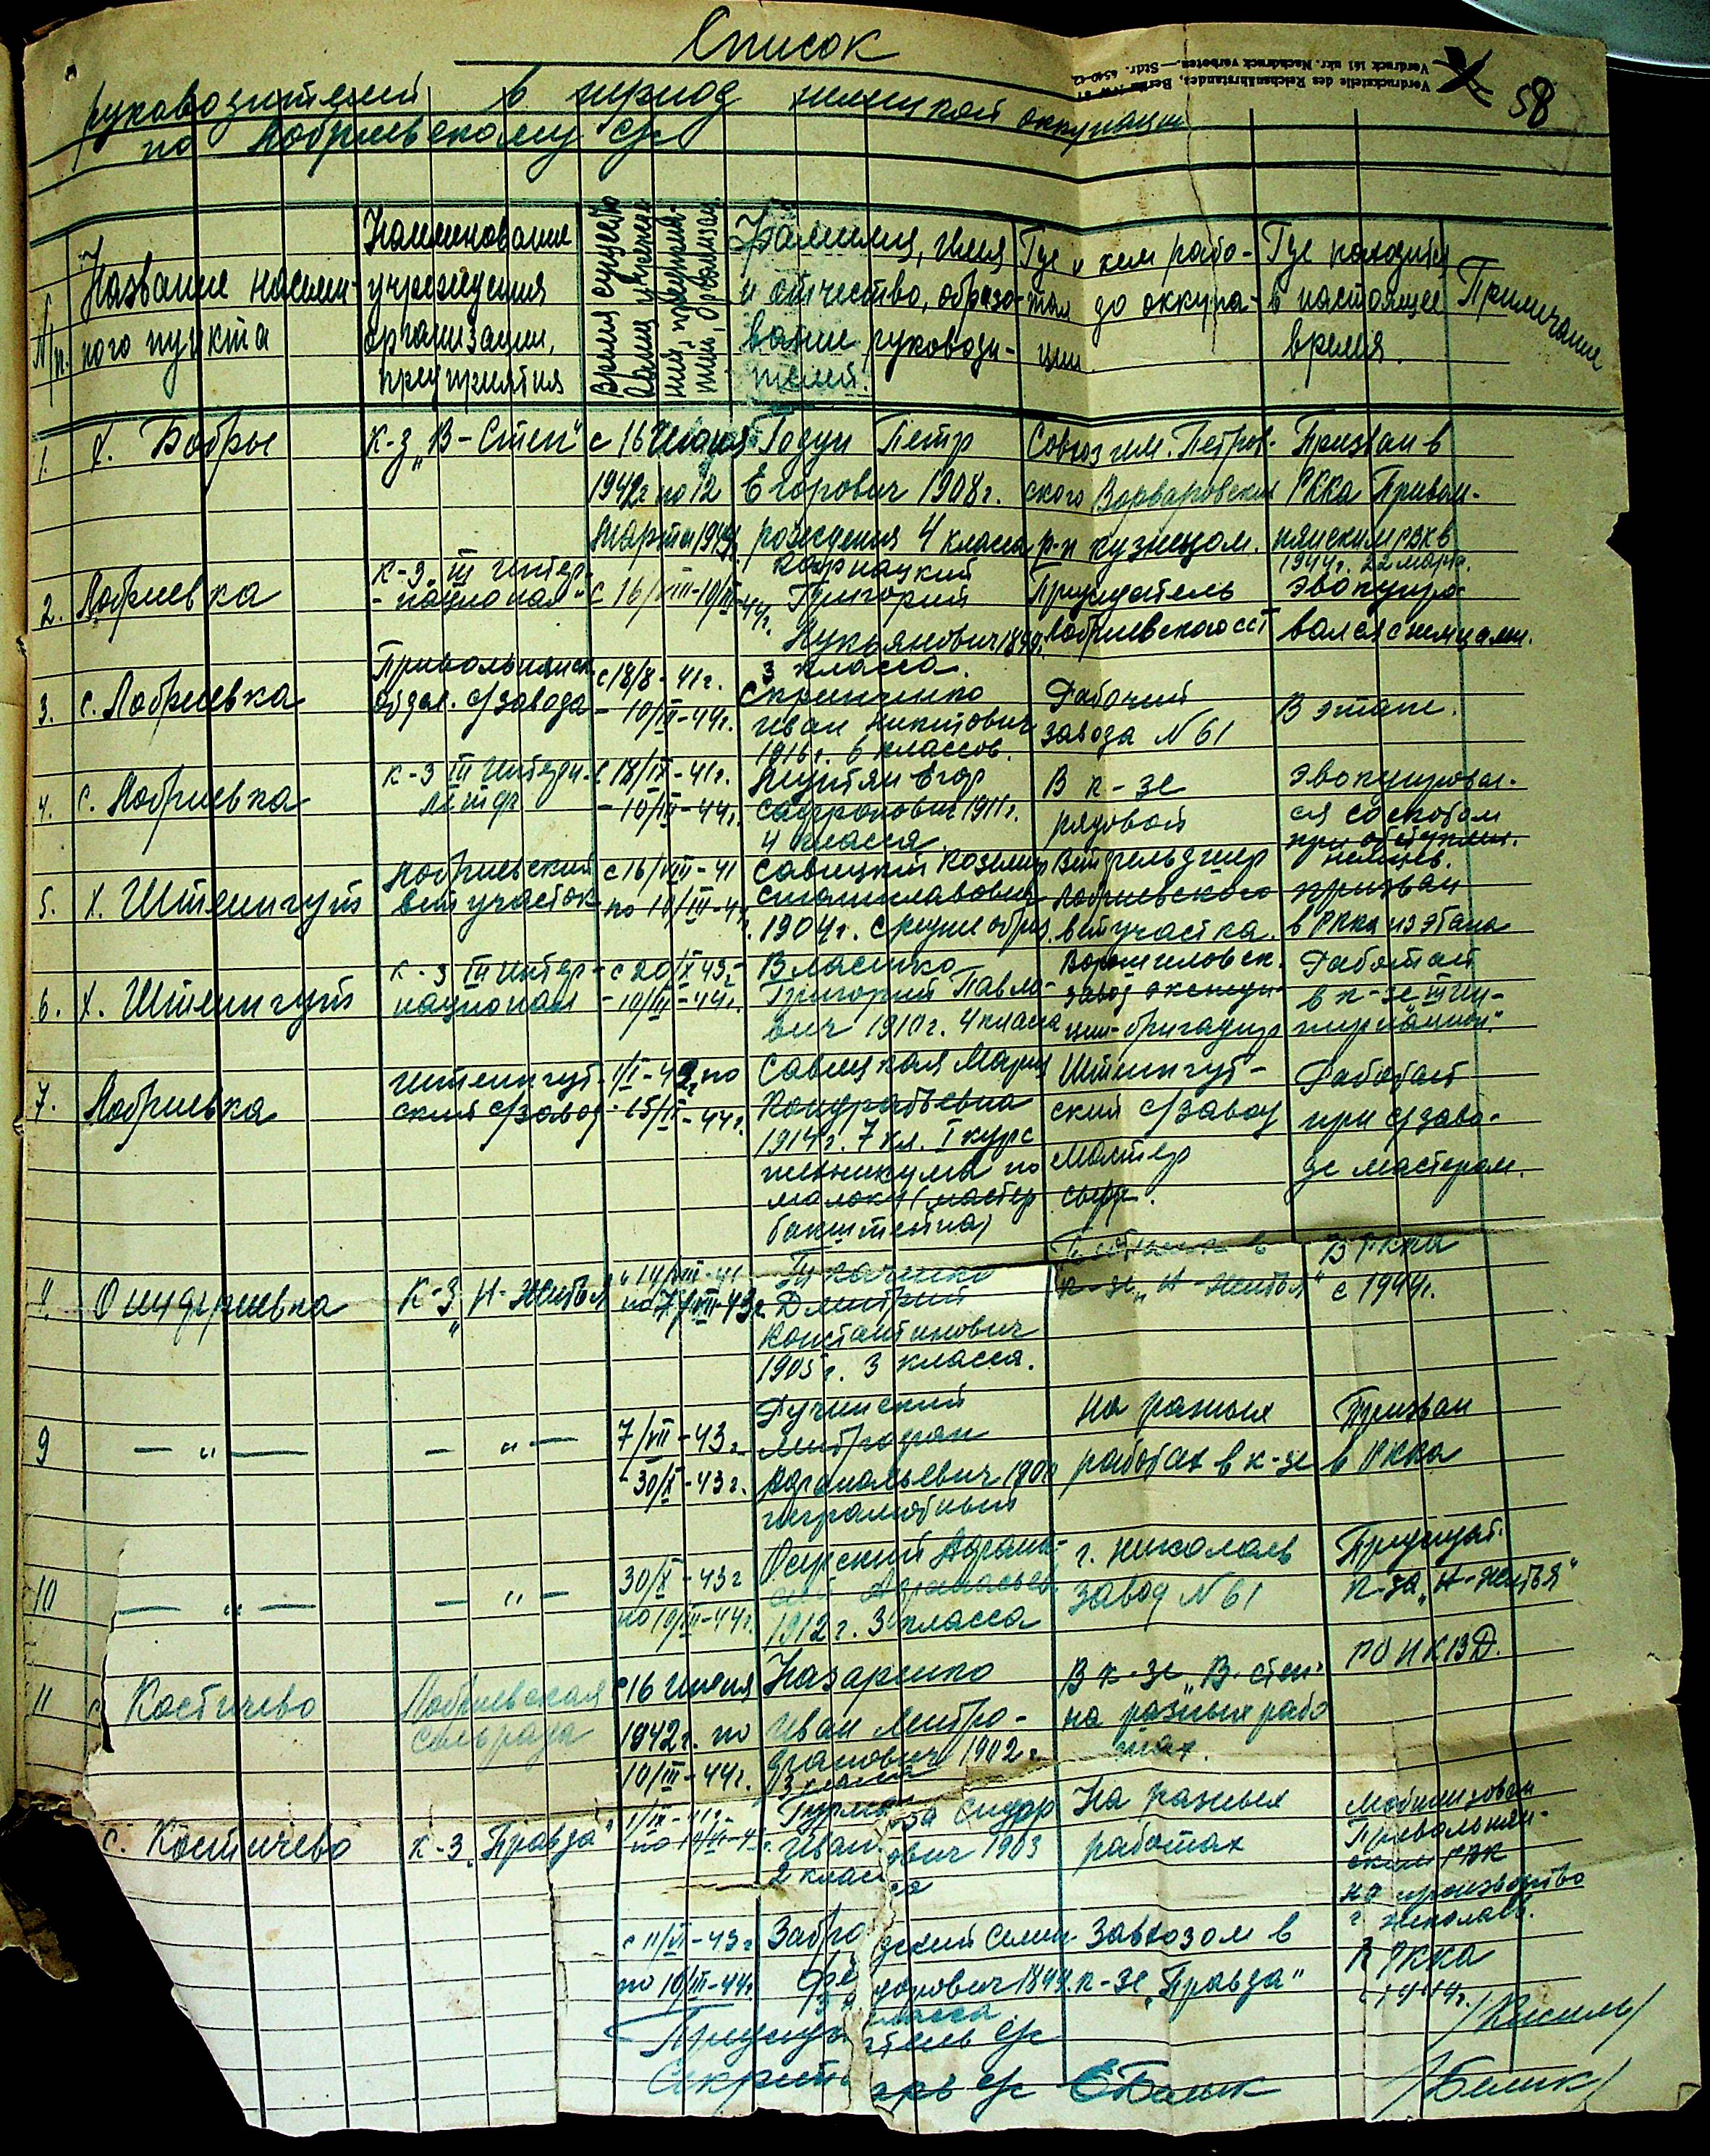 Список
58
руководителей в период немецкой оккупации
по Лобриевскому с/с
Vordruckstelle des Reichsnährstandes, Berlin
Vordruck 161 ukr. Nachdruck verboten. — Stdr.
№ п.
Название населен-
ного пункта
Наименование
учреждения
организации,
предприятия
Фамилия, имя
и отчество, образо-
вание руководи-
телей.
Где и кем рабо-
тал до оккупа-
ции.
Где находится
в настоящее
время.
Примечание
1. х. Бобры
к-з „В-Степ"
с 16 Июня
1942г по 12
Марта 1944г.
Годун Петр
Егорович 1908г.
рождения 4 класса
Совхоз им. Петров-
ского Варваровский
р-н кузнецом.
Призван в
РККА Привол-
нянским РВК в
1944г. 22 марта.
2. Лобриевка
к-з „III Интер-
национал"
с 16/VIII-10/III-44г.
Григорий
Лукьянович
3 класса.
Председатель
Лобриевского с/с
Эвакуиро-
вался с немцами.
3. с. Лобриевка
отдел. с/завода
с 18/8-41г.
- 10/III-44г.
Иван Никитович
1916г. 6 классов.
Рабочий
завода N 61
В этапе.
4. с. Лобриевка
к-з III Интерн-
с 18/IX-41г.
- 10/III-44г.
Егор
Сафронович 1911г.
4 класса
В к-зе
рядовой
Эвакуировал-
ся со скотом
при отступлен.
немцев.
5. х. Штейнгут
Лобриевский
ветучасток
с 16/VIII-41
по 10/III-44
Савицкий Козимир
Станиславович
1904г. средне образ.
Ветфельдшер
Лобриевского
ветучастка.
призван
в РККА из этапа
6. х. Штейнгут
к-з III Интер-
национал
с 20/X 43г-
-10/III-44г.
Власенко
Григорий Павло-
вич 1910г. 4 класса
Ворошиловск.
завод
бригадир
Работает
в к-зе „III Ин-
тернацион."
7. Лобриевка
Штейнгут-
ский с/завод
1/I-42г по
15/III-44г.
Савицкая Мария
Кондратьевна
1914г. 7 кл. I курс
техникума по
молоку (мастер
бакштейна)
Штейнгут-
ский с/завод
Мастер
сыра.
Работает
при с/заво-
де мастером.
8. Онуфриевка
к-з „Н-Житья"
14/VIII-41
по 7/VII-43г.
Ткаченко
Дмитрий
Константинович
1905г. 3 класса.
к-зе „Н-Житья"
В РККА
с 1944г.
9 — „ —
— „ —
7/VII-43г.
-30/X-43г.
Ручинский
Митрофан
1900
неграмотный
На разных
работах в к-зе
Призван
в РККА
10 — „ —
— „ —
30/X-43г
по 10/III-44г.
1912г. 3 класса
г. Николаев
завод N 61
Председат.
к-за „Н-Житья"
11 с. Костичево
Лобриевская
сельрада
с 16 июня
1942г. по
10/III-44г.
Назаренко
Иван Митро-
фанович 1902г
3 класса
В к-зе „В. степ."
на разных рабо
тах.
РО НКВД.
с. Костичево
к-з „Правда"
1/IX-41г-
Сидор
Иванович 1903
2 класса
На разных
работах
Мобилизован
Привольнян-
ским РВК
на производство
г. Николаев.
с 11/VI-43г
по 10/III-44г.
Забродский Семен
3 класса
Завхозом в
к-зе „Правда"
В РККА
с 1944г.
Председатель с/с
/Кисиль/
Секретарь с/с
/Белик/